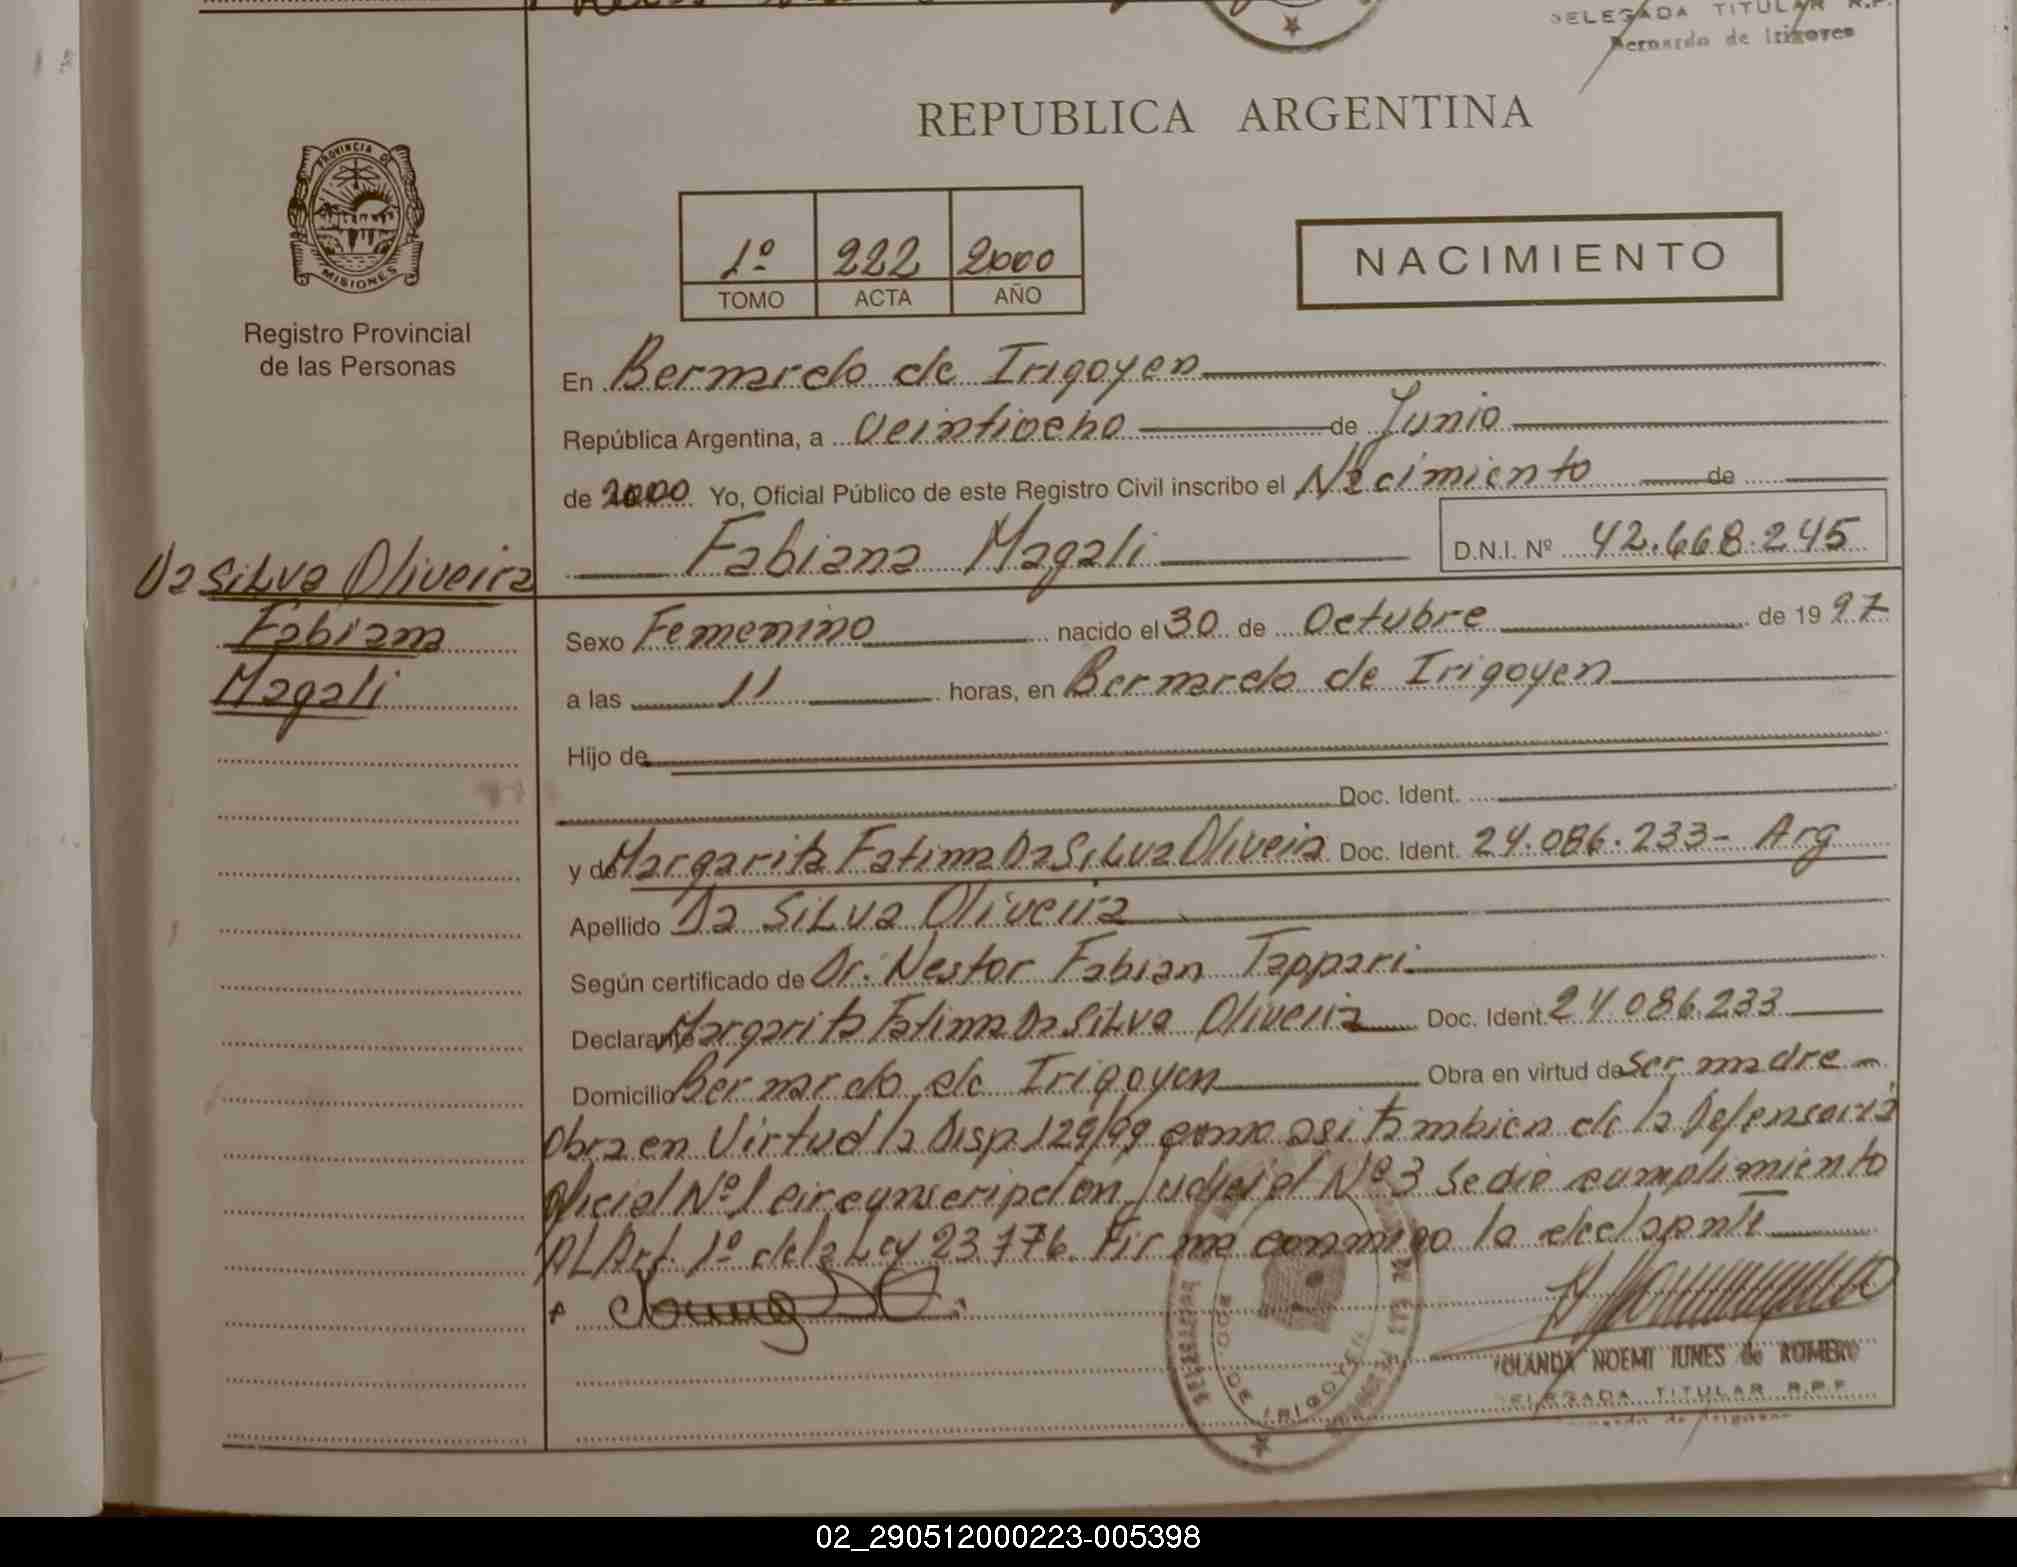 DELEGADA TITULAR R.P.
Bernardo de Irigoyen
REPUBLICA ARGENTINA
PROVINCIA DE
MISIONES
Registro Provincial
de las Personas
1º 222 2000
TOMO ACTA AÑO
NACIMIENTO
En Bernardo de Irigoyen
República Argentina, a Veintiocho de Junio
de 2000 Yo, Oficial Público de este Registro Civil inscribo el Nacimiento de
Fabiana Magali D.N.I. Nº 42.668.245
Da SiLva Oliveira
Fabiana
Magali
Sexo Femenino nacido el 30 de Octubre de 1997
a las 11 horas, en Bernardo de Irigoyen
Hijo de
Doc. Ident.
y de Margarita Fatima Da SiLva Oliveira Doc. Ident. 24.086.233- Arg
Apellido Da SiLva Oliveira
Según certificado de Dr. Nestor Fabian Tappari
Declarante Margarita Fatima Da SiLva Oliveria Doc. Ident. 24.086.233
Domicilio Bernardo de Irigoyen Obra en virtud de Ser madre
Obra en Virtud la Disp. 129/99 como asi tambien de la Defensoria
Oficial Nº 1 circunscripcion Judicial Nº 3 Se dio cumplimiento
AL Art. 1º de la Ley 23.776. Firma conmigo la declarante
BDO. DE IRIGOYEN
YOLANDA NOEMI IUNES de ROMERO
DELEGADA TITULAR R.P.P.
02_290512000223-005398